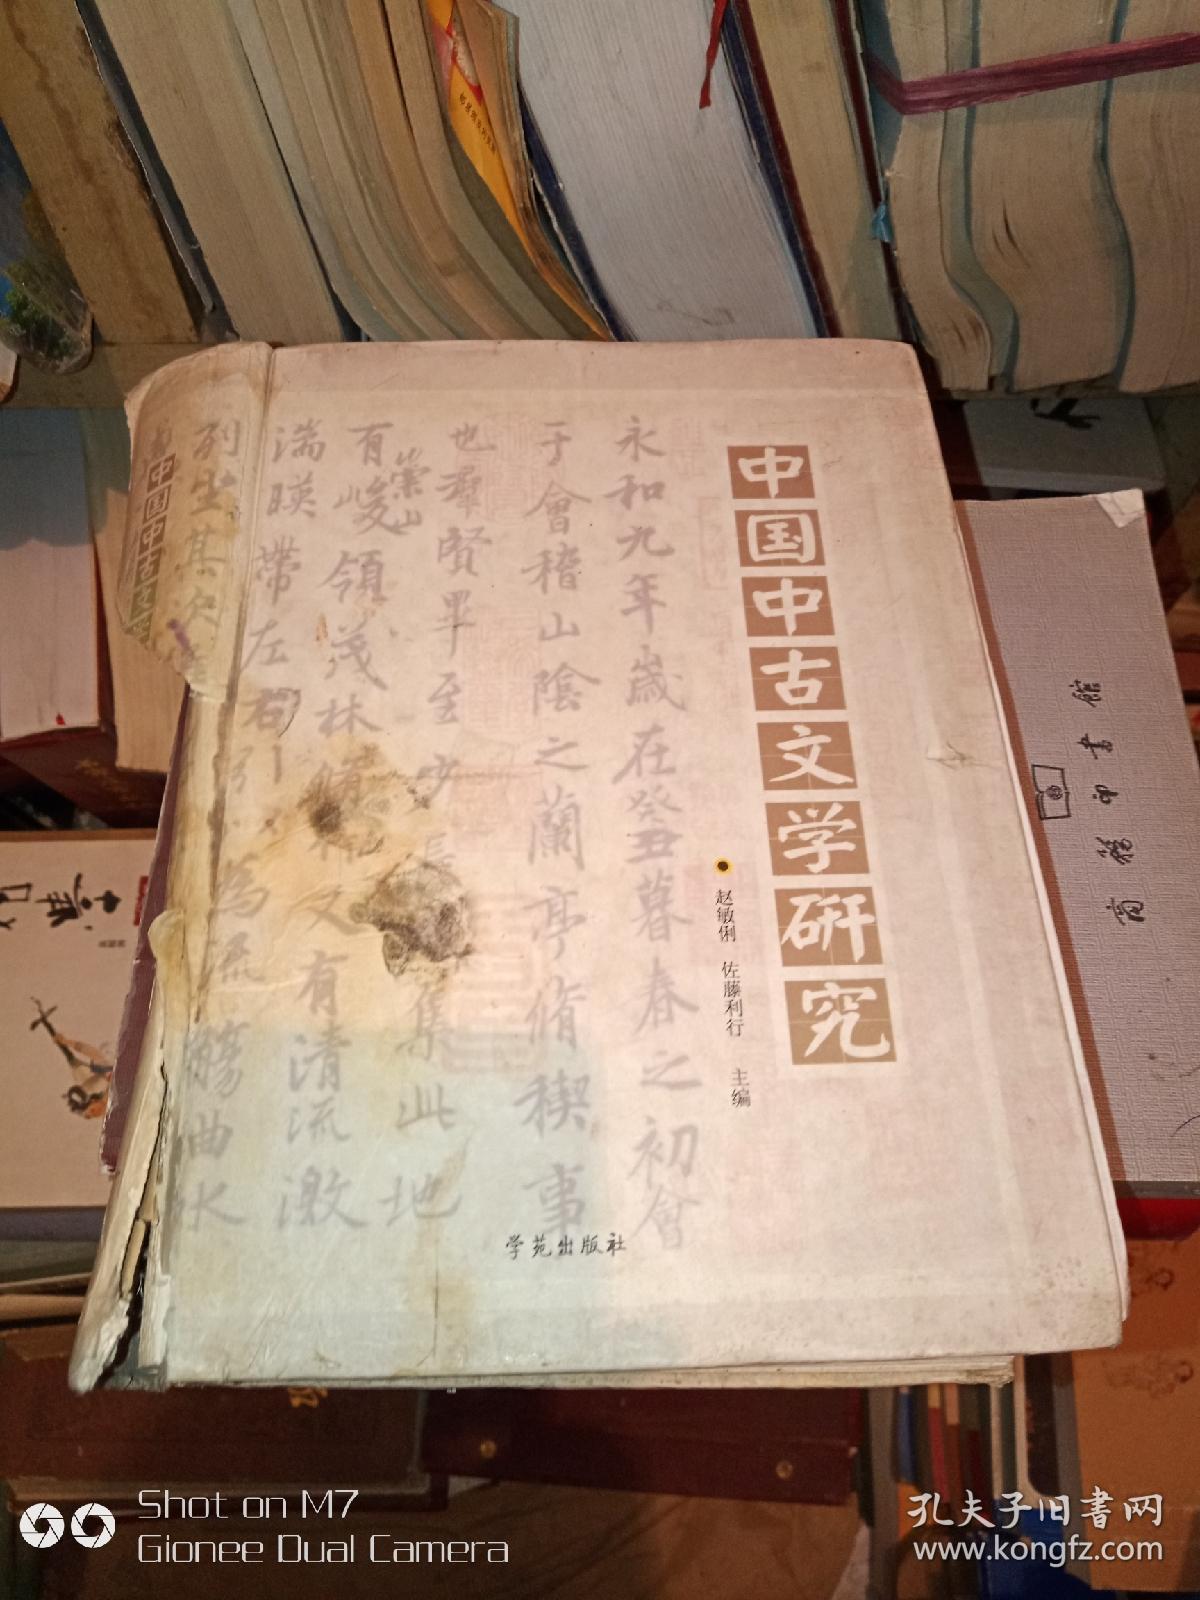 中国中古文学研究
赵敏俐 佐藤利行 主编
永和九年歲在癸丑暮春之初會
于會稽山陰之蘭亭脩稧事
也羣賢畢至少長集此地
有崇山峻領茂林脩竹又有清流激
湍暎帶左右引以為流觴曲水
列坐其次
学苑出版社
中国中古文
商務印書館
Shot on M7
Gionee Dual Camera
孔夫子旧书网
www.kongfz.com